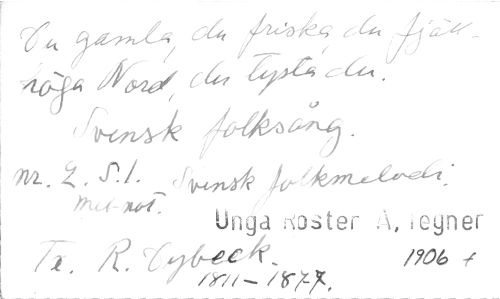 Du gamla, du friska, du fjäll-
höga Nord, du tysta du.
Svensk folksång.
nr. 2. S.1. Svensk folkmelodi.
mel-not.
Unga Röster A. Tegner
Tx. R. Dybeck. 1906 +
1811-1877.